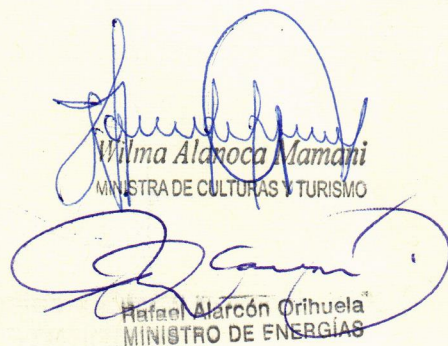 Wilma Alanoca Mamani
MINISTRA DE CULTURAS Y TURISMO
Rafael Alarcón Orihuela
MINISTRO DE ENERGÍAS